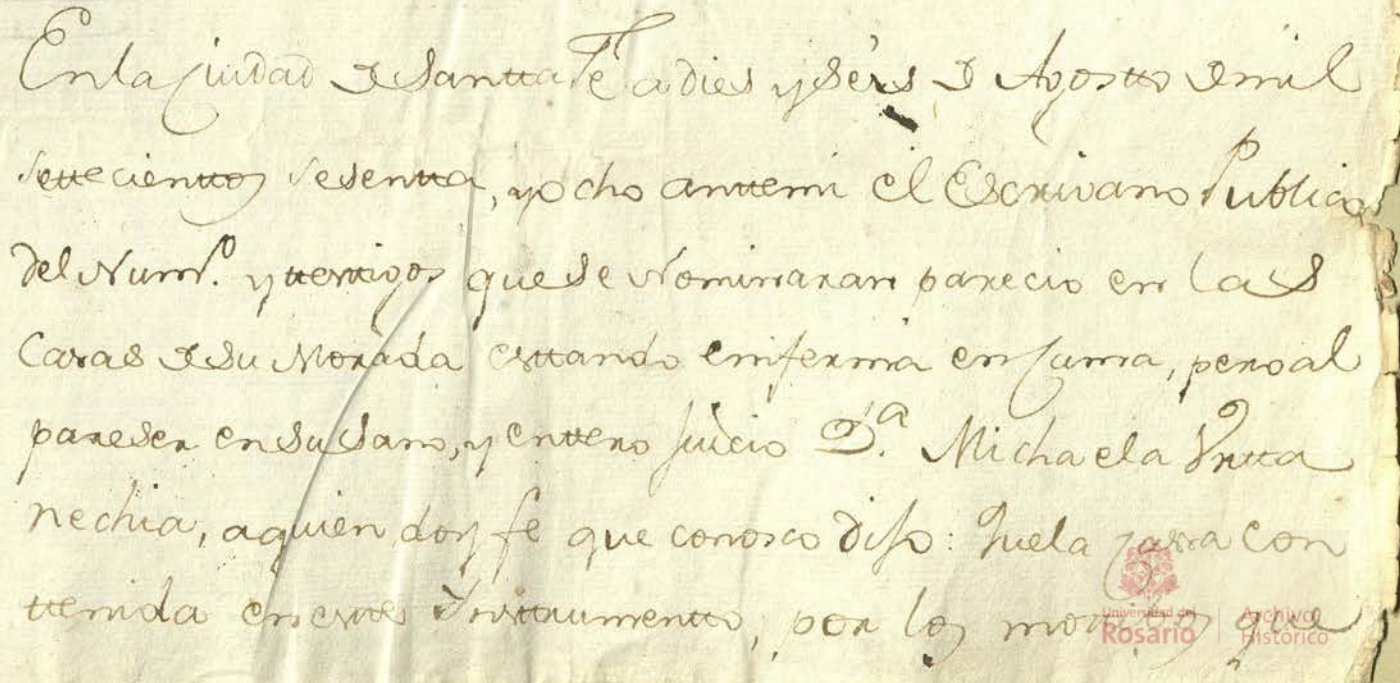 En la Ciudad de Santta Fe a dies y seis de Agostto de mil
settecienttos sesentta, y ocho antte mi el Escrivano Publico
del Num.º y testtigos que se Nominaran parecio en las
Casas de su Morada esttando enferma en suma, pero al
pareser en su sano, y enttero Juicio D.ª Michaela Vrtta
nechia, a quien doy fe que conosco dijo: Que la casa con
ttenida en estte Insttrumentto, por los motivos que
Universidad del
Rosario
Archivo
Histórico